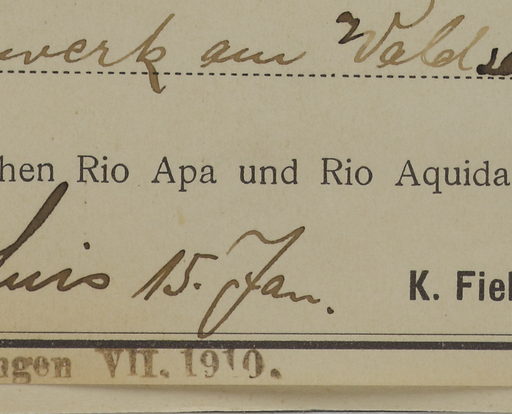 werk am Walds
hen Rio Apa und Rio Aquida
Luis 15. Jan. K. Fiel
ngen VII. 1910.